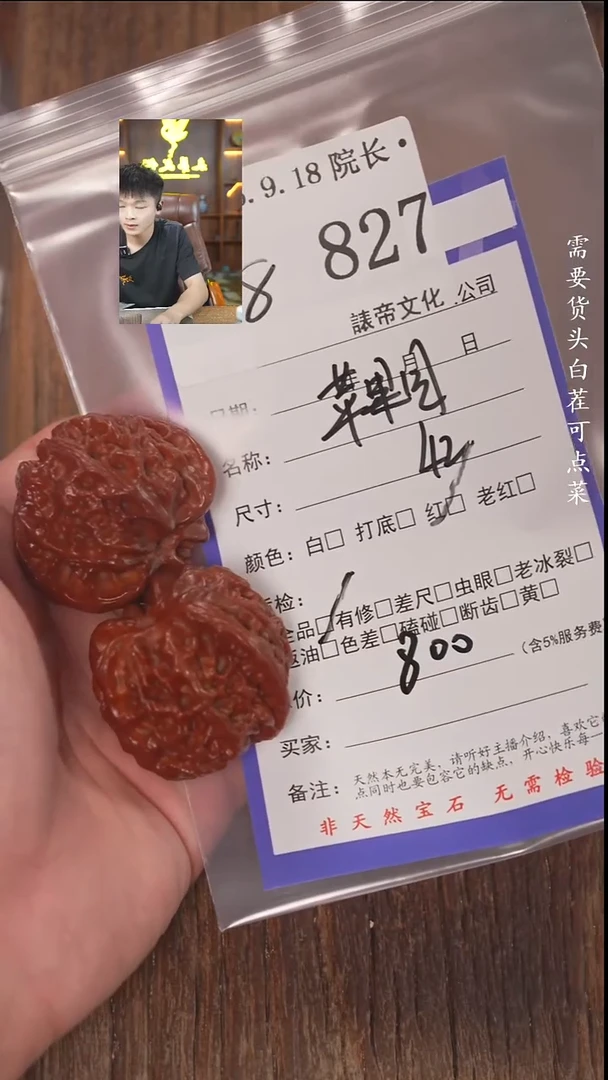 .9.18 院长.
8 827
諘帝文化 公司
月 日
日期：苹果园
名称：
42
尺寸：
颜色：白□ 打底□ 红□ 老红□
检：
全品□有修□差尺□虫眼□老冰裂□
返油□色差□磕碰□断齿□黄□
价：800（含5%服务费
买家：
备注：天然本无完美，请听好主播介绍，喜欢它
点同时也要包容它的缺点，开心快乐每一
非天然宝石 无需检验
需要货头白茬可点菜